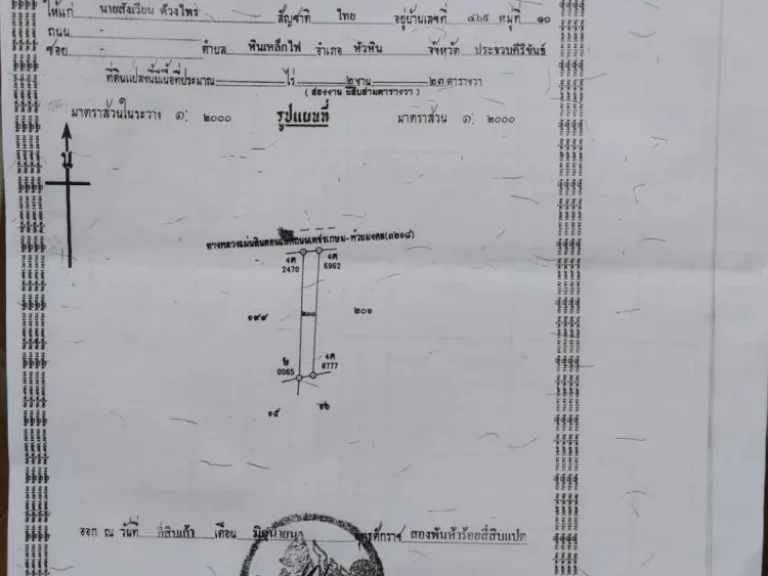 ให้แก่ นายสังเวียน ด้วงไพร สัญชาติ ไทย อยู่บ้านเลขที่ ๔๖๕ หมู่ที่ ๑๐
ถนน -
ซอย - ตำบล หินเหล็กไฟ อำเภอ หัวหิน จังหวัด ประจวบคีรีขันธ์
ที่ดินแปลงนี้มีเนื้อที่ประมาณ ไร่ ๒ งาน ๒๓ ตารางวา
( สองงาน ยี่สิบสามตารางวา )
มาตราส่วนในระวาง ๑: ๒๐๐๐ รูปแผนที่ มาตราส่วน ๑: ๒๐๐๐
น
ทางหลวงแผ่นดินตอนแยกถนนเพชรเกษม-ห้วยมงคล(๓๒๑๘)
4ค 4ค
2470 6962
๑๙๙ ๒๐๐ ๒๐๑
ษ 4ค
0065 8777
๑๕ ๑๖
ออก ณ วันที่ สิบเก้า เดือน มิถุนายน พุทธศักราช สองพันห้าร้อยสี่สิบแปด